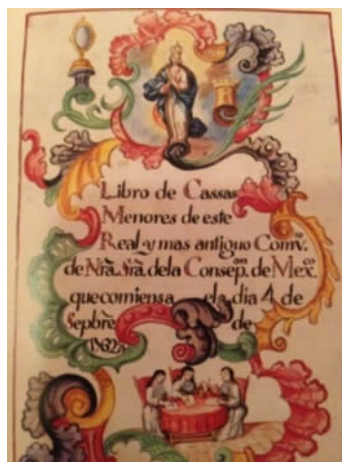 Libro de Cassas
Menores de este
Real y mas antiguo Comvto.
de Ntrã. Srã. de la Consepon. de Mexco.
que comiensa el a dia 4 de
Sepbrẽ de